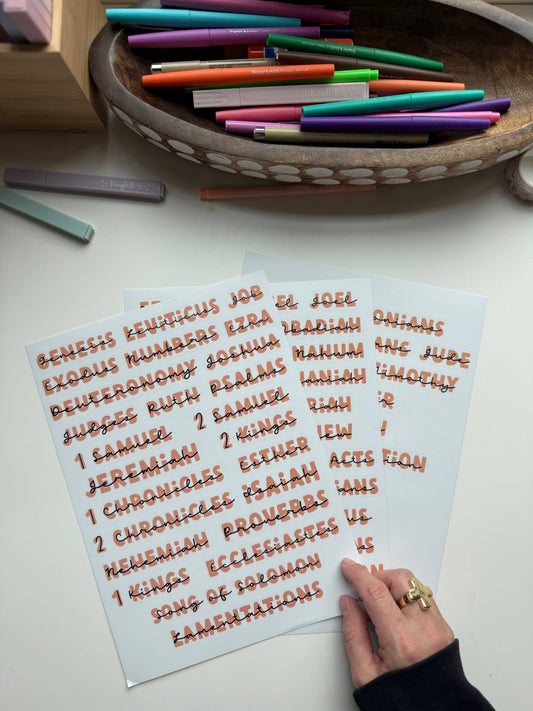 Genesis Leviticus Job
Exodus Numbers Ezra
Deuteronomy Joshua
Judges Ruth Psalms
1 Samuel 2 Samuel
Jeremiah 2 Kings
1 Chronicles Esther
2 Chronicles Isaiah
Nehemiah Proverbs
1 Kings Ecclesiastes
Song of Solomon
Lamentations
el Joel
badiah
Nahum
aniah
ariah
ew
Acts
ians
us
onians
ans Jude
imothy
er
tion